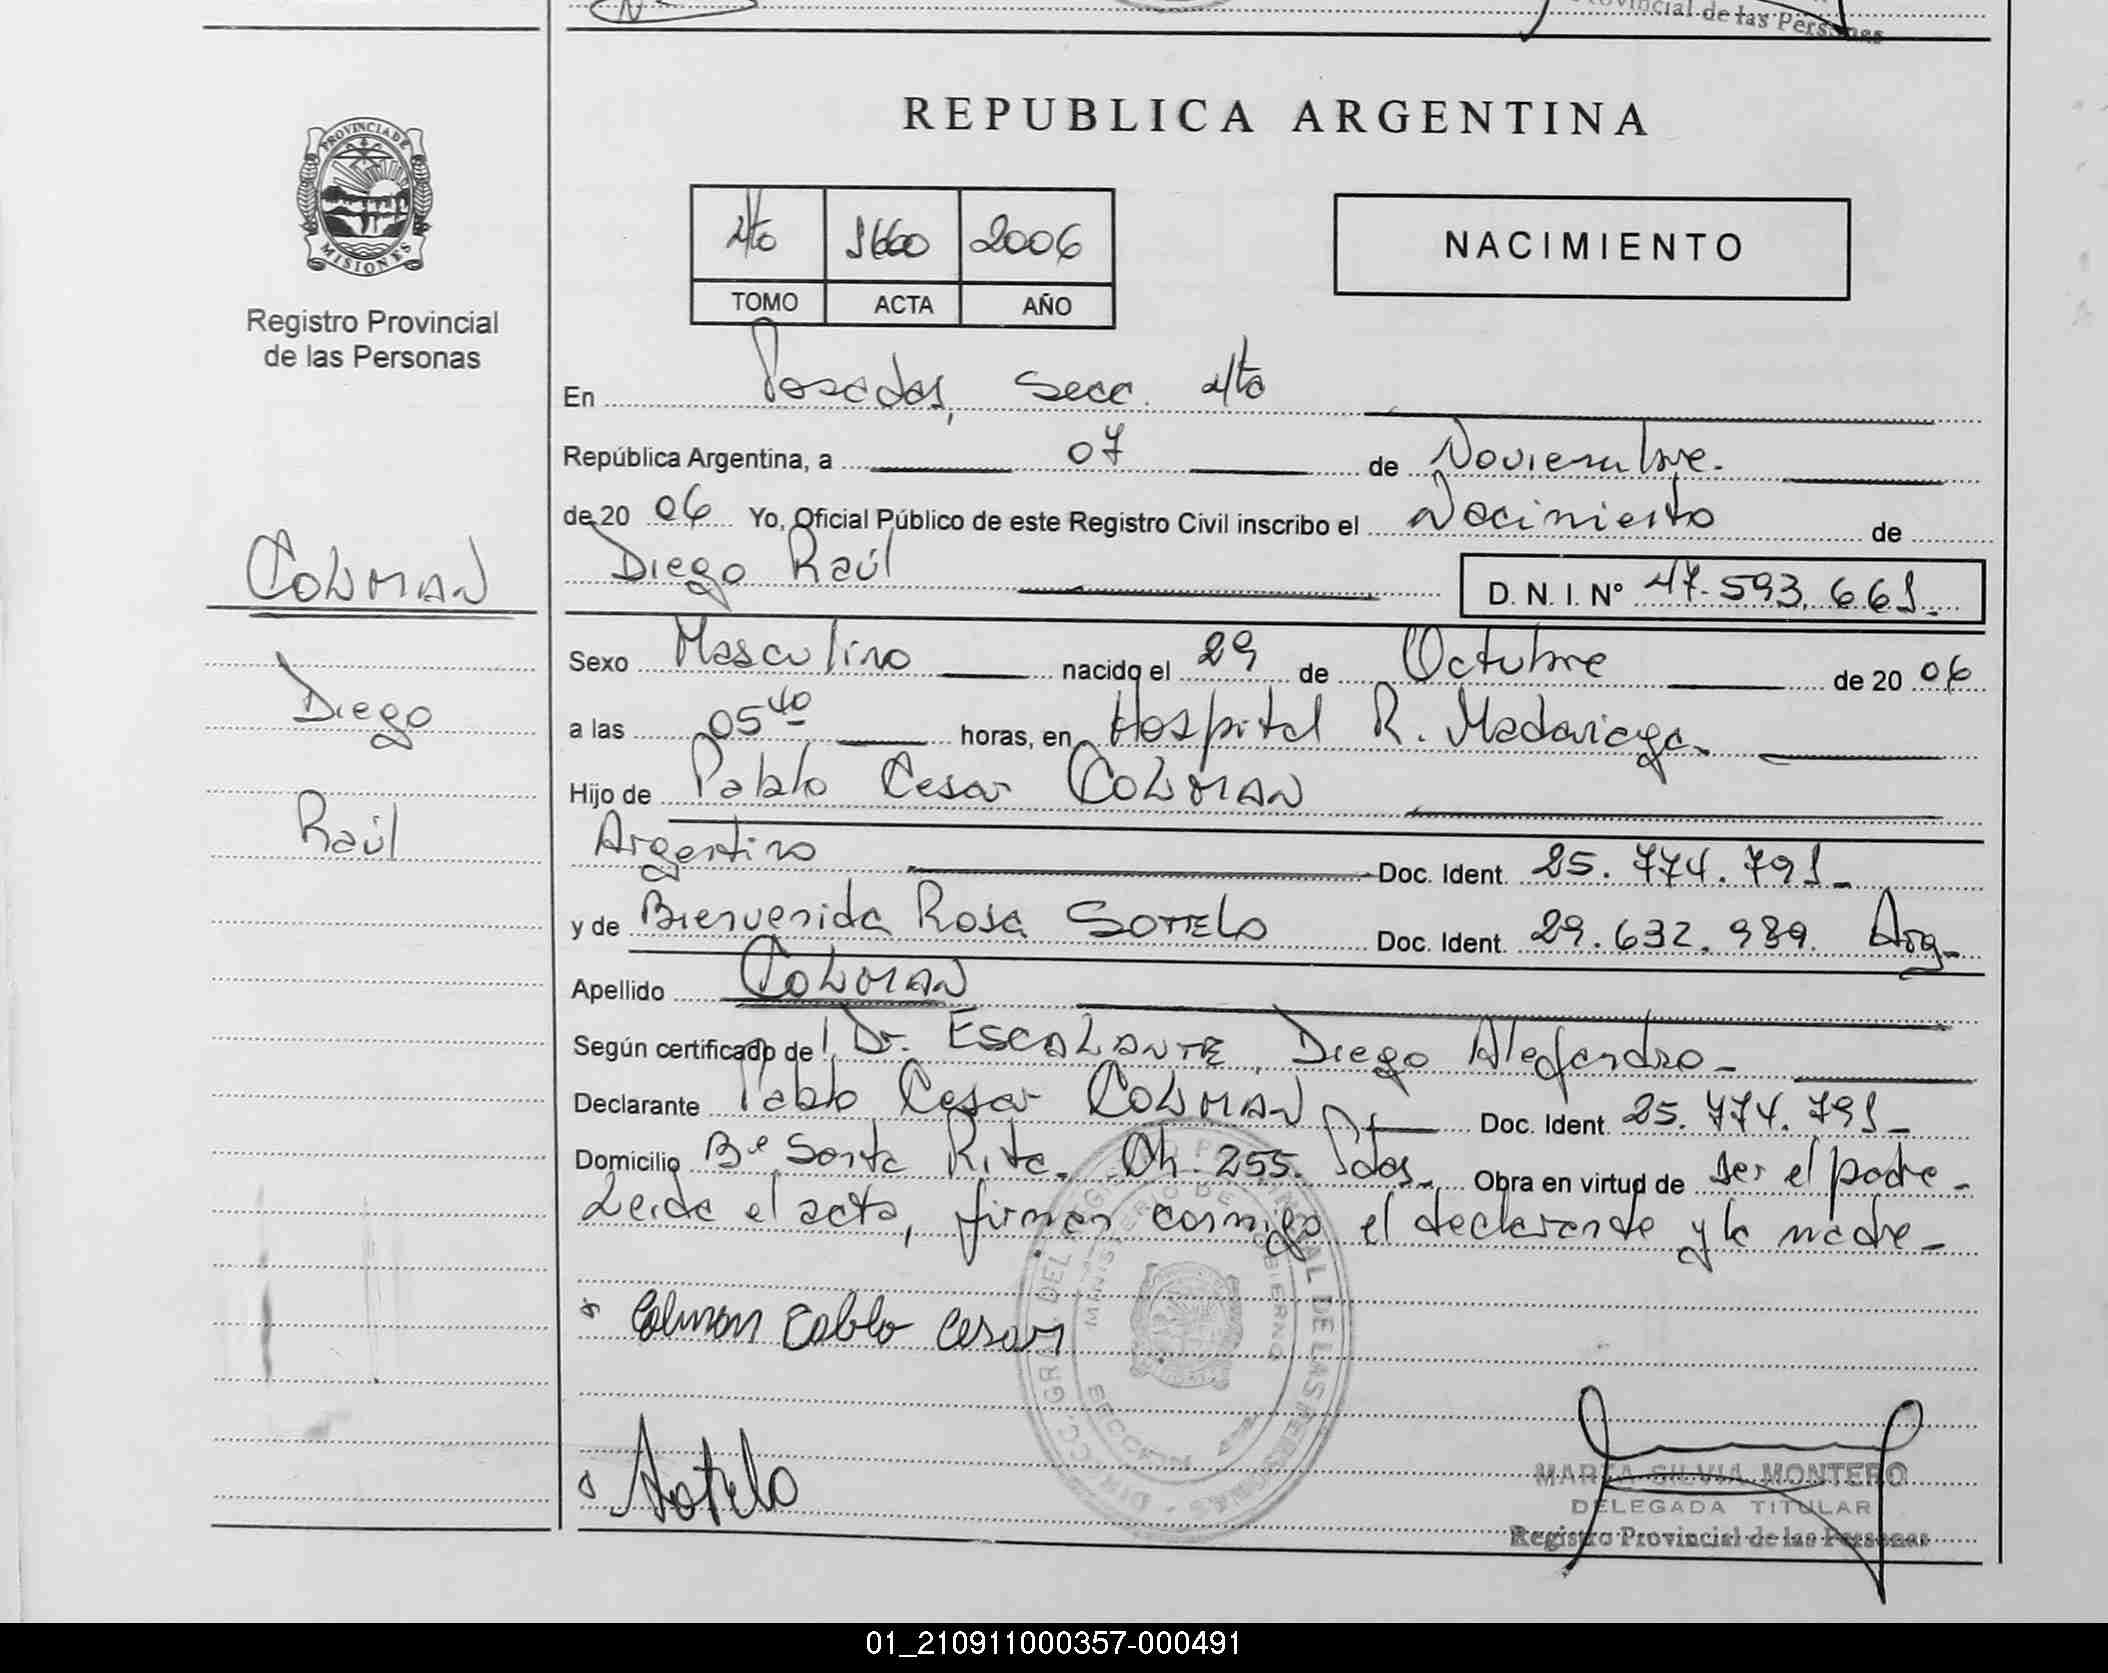 Provincial de las Personas
PROVINCIA DE
MISIONES
Registro Provincial
de las Personas
COLMAN
Diego
Raúl
REPUBLICA ARGENTINA
4to 1660 2006
TOMO ACTA AÑO
NACIMIENTO
En Posadas, Secc. 4to
República Argentina, a 07 de Noviembre.
de 20 06 Yo, Oficial Público de este Registro Civil inscribo el Nacimiento de
Diego Raúl D. N. I. Nº 47.593.661.
Sexo Masculino nacido el 29 de Octubre de 20 06
a las 05 40 horas, en Hospital R. Madariaga.
Hijo de Pablo Cesar COLMAN
Argentino Doc. Ident. 25.774.791_
y de Bienvenida Rosa SOTELO Doc. Ident. 29.632.989. Arg_
Apellido COLMAN
Según certificado de l Dr. ESCALANTE, Diego Alejandro_
Declarante Pablo Cesar COLMAN Doc. Ident. 25.774.791_
Domicilio Bº Santa Rita. Ch. 255. Pdas. Obra en virtud de ser el padre_
Leida el acta, firman conmigo el declarante y la madre_
Colman Pablo Cesar
Sotelo
DIRECC. GRAL DEL REGISTRO PROVINCIAL DE LAS PERSONAS
MINISTERIO DE GOBIERNO
SECCION
MARTA SILVIA MONTERO
DELEGADA TITULAR
Registro Provincial de las Personas
01_210911000357-000491